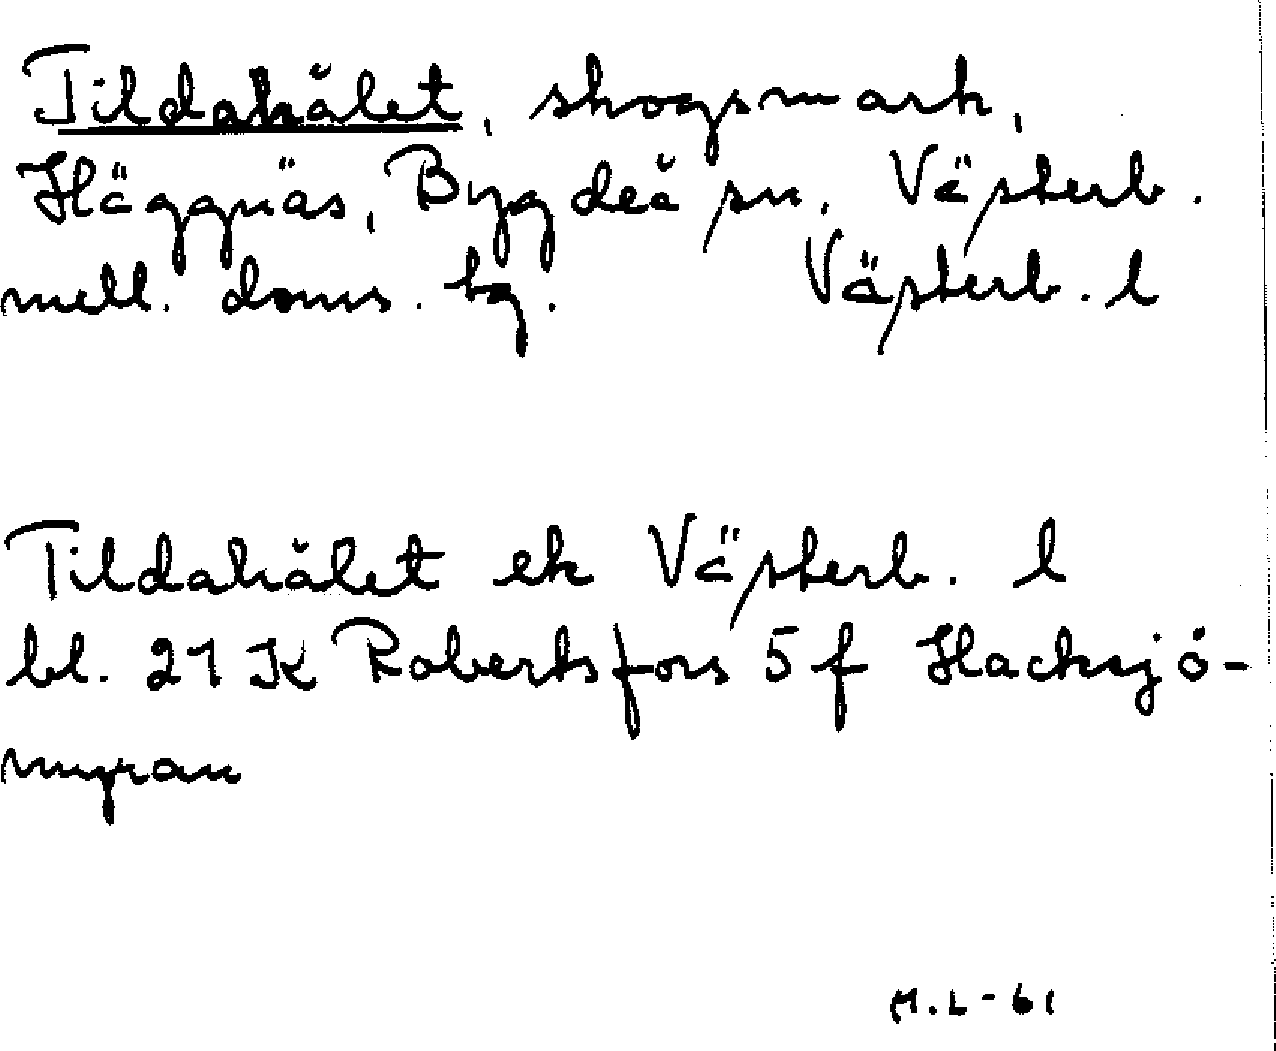 Tildahålet, skogsmark,
Häggnäs, Bygdeå sn, Västerb.
mell. doms. bg. Västerb. l
Tildahålet ek Västerb. l
bl. 21 K Robertsfors 5 f Hacksjö-
myran
M.L-61